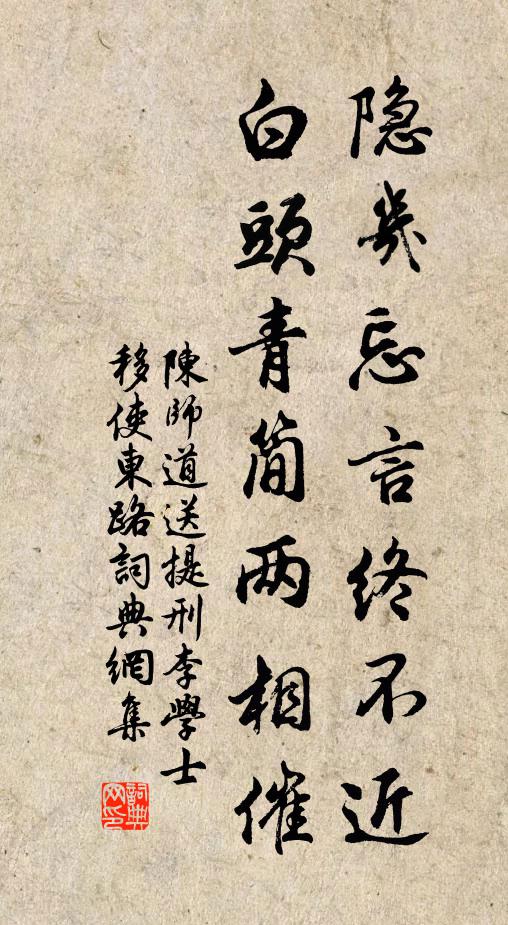 隐幾忘言终不近
白頭青简两相催
陳師道送提刑李學士
移使東路詞典網集
詞典网印